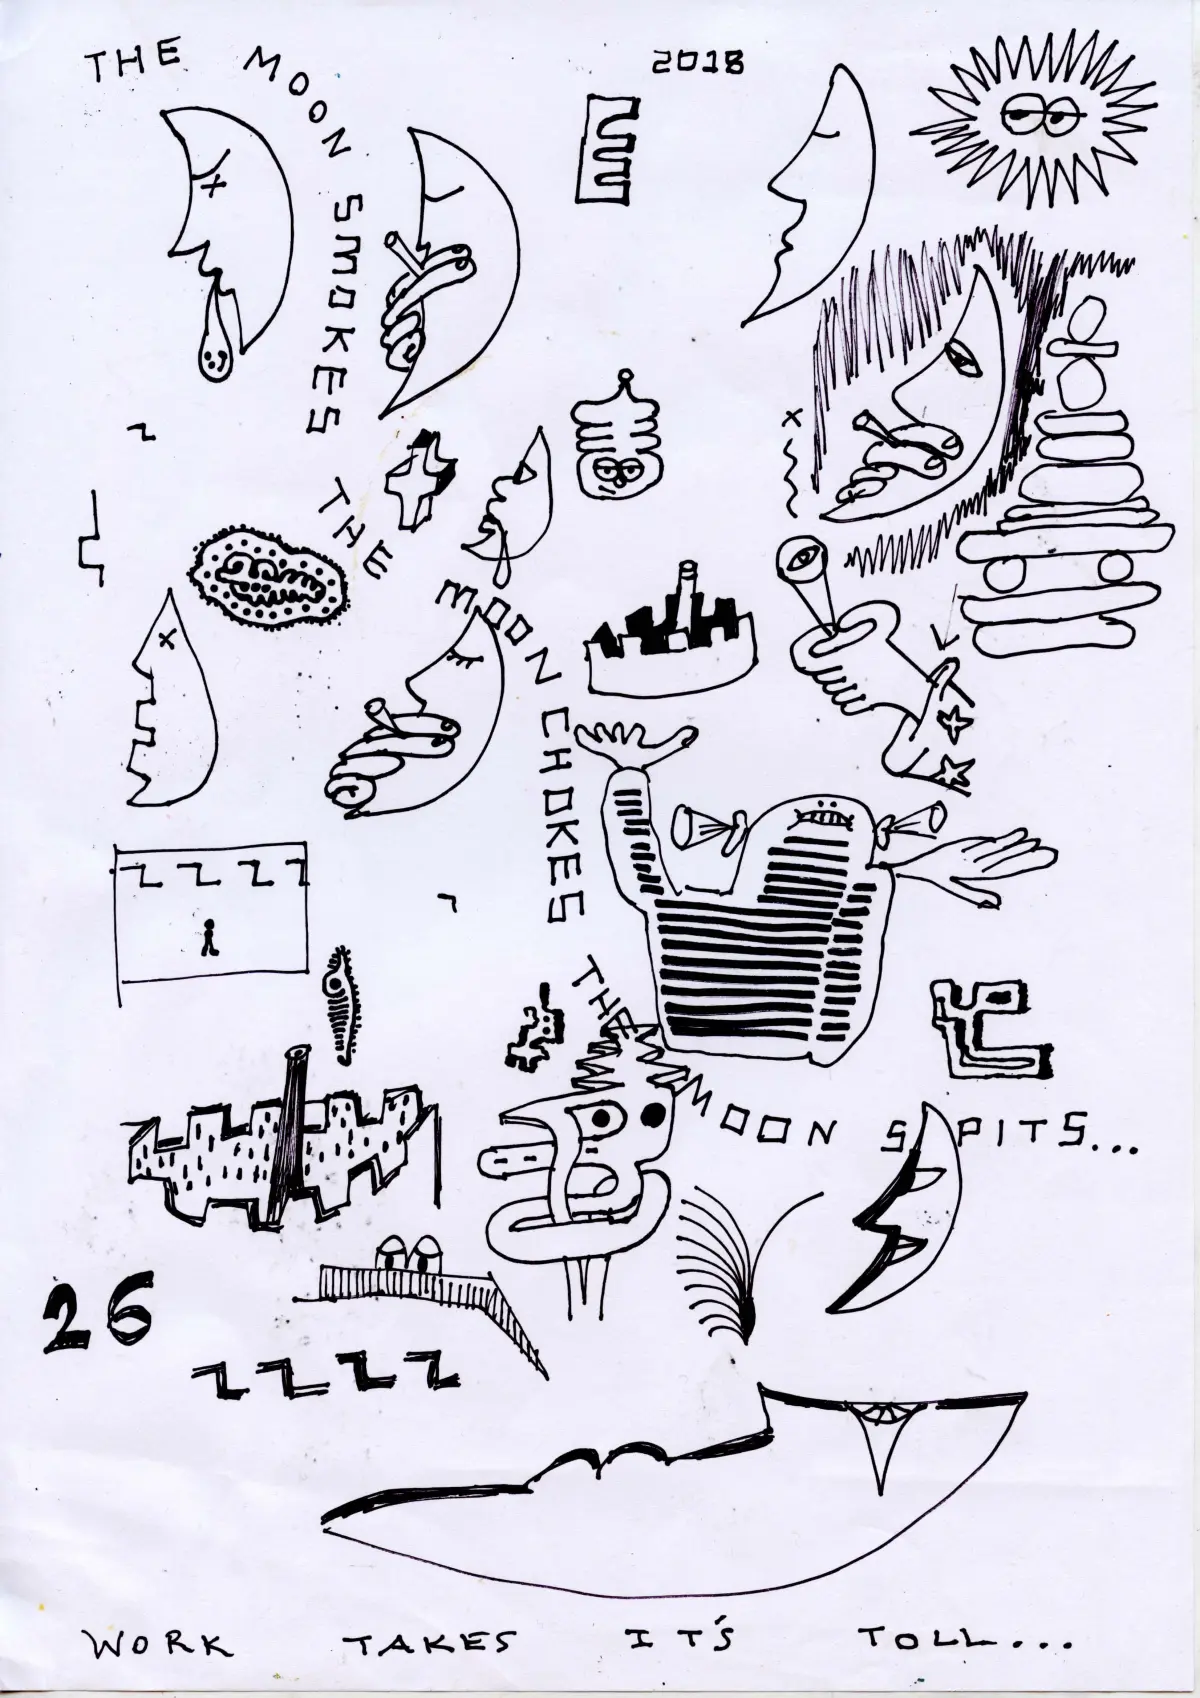 THE MOON SMOKES THE MOON CHOKES THE MOON SPITS...
2018
26
WORK TAKES IT'S TOLL...